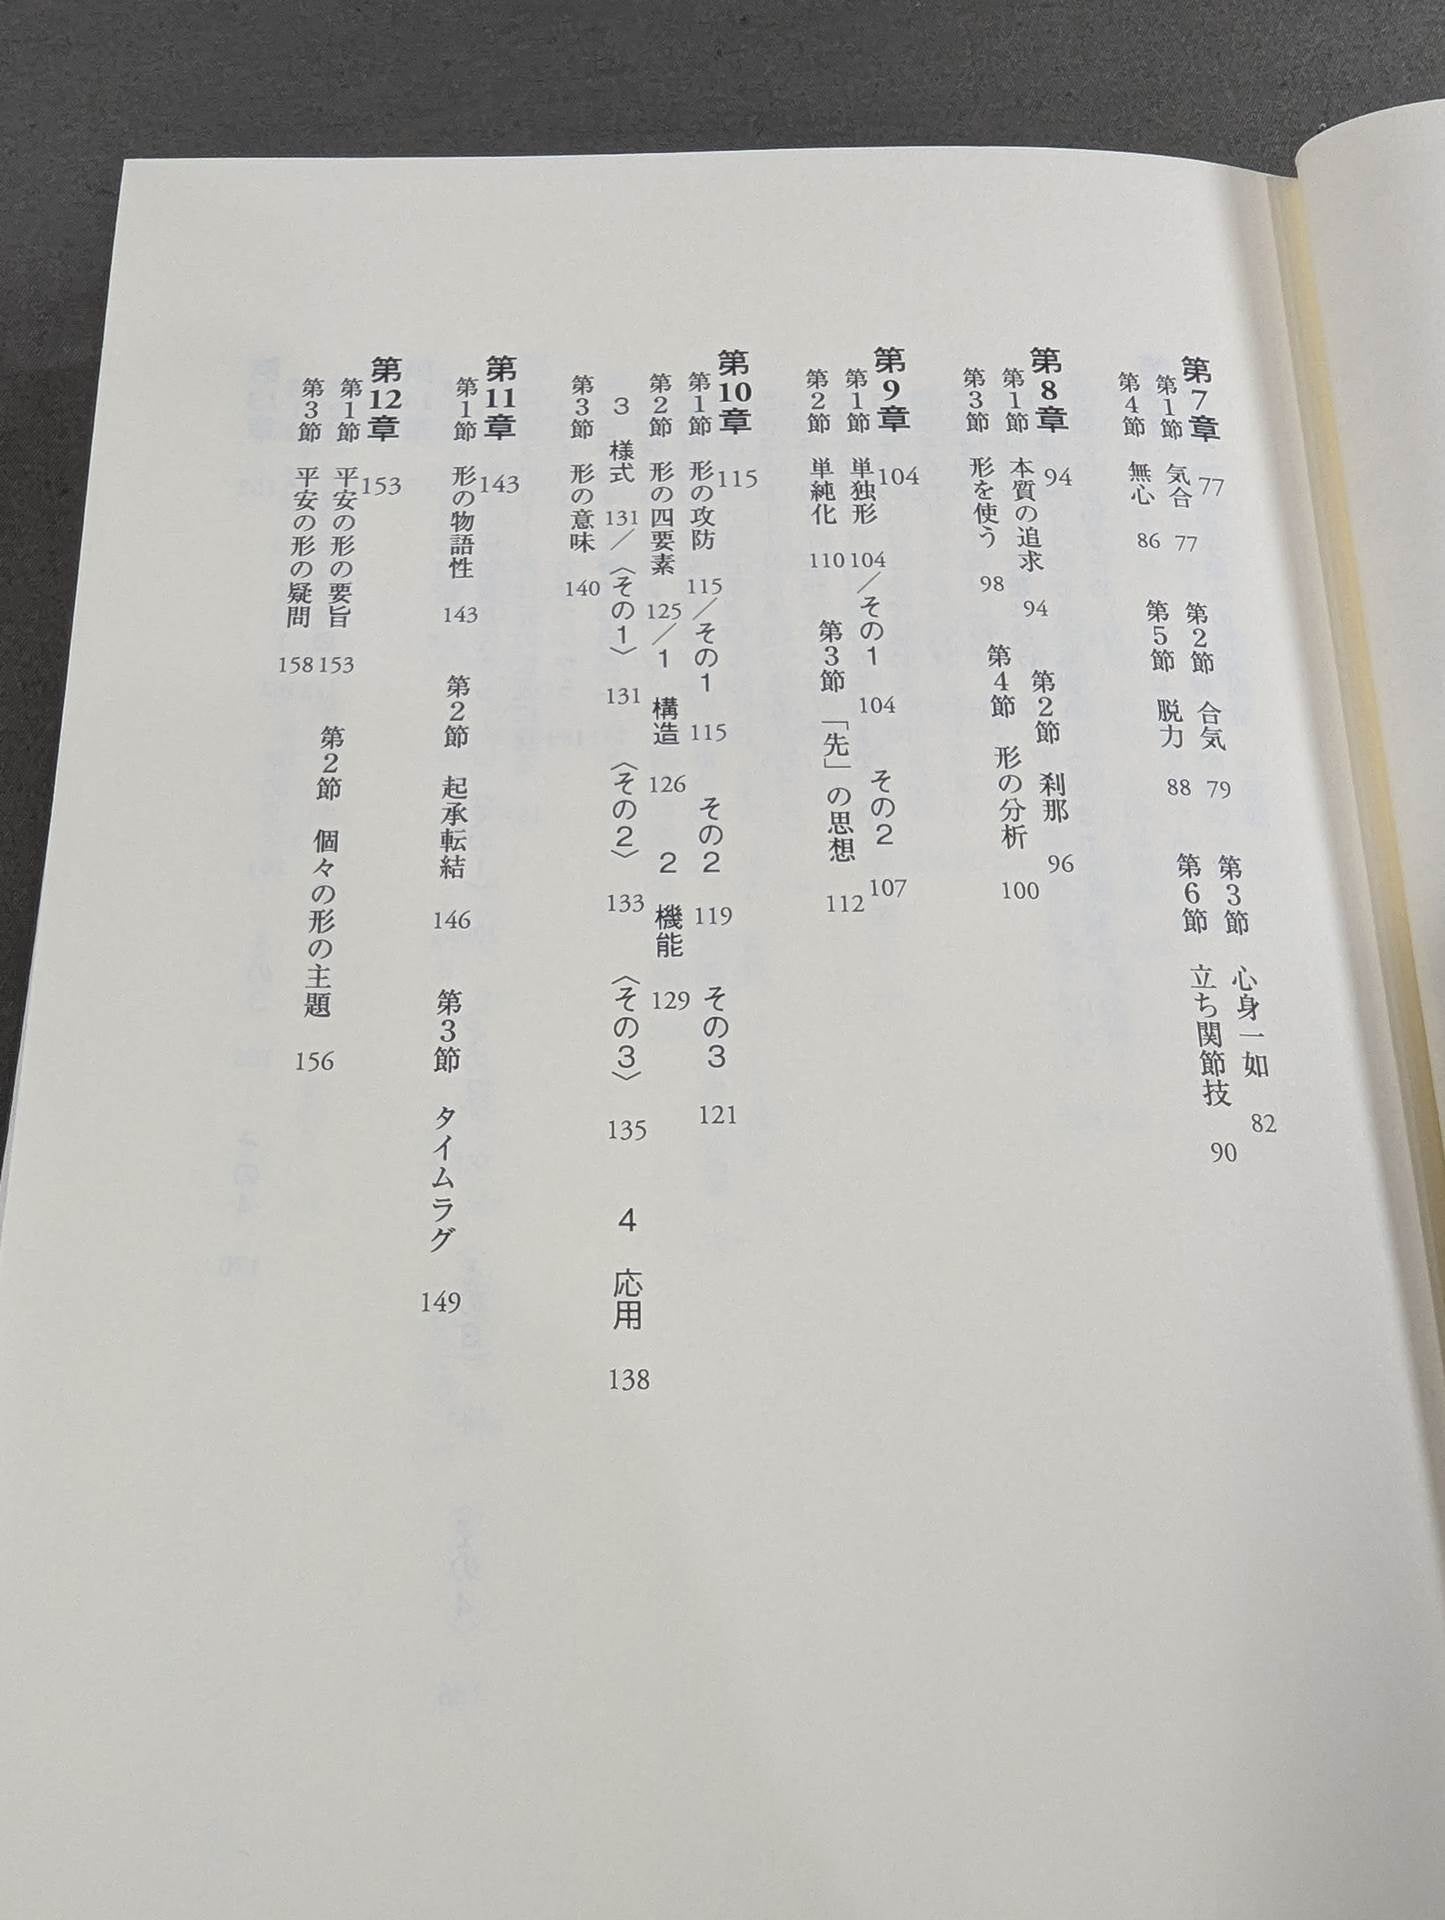 第7章 77
第1節 気合 77 第2節 合気 79 第3節 心身一如 82
第4節 無心 86 第5節 脱力 88 第6節 立ち関節技 90
第8章 94
第1節 本質の追求 94 第2節 刹那 96
第3節 形を使う 98 第4節 形の分析 100
第9章 104
第1節 単独形 104／その1 104 その2 107
第2節 単純化 110 第3節 「先」の思想 112
第10章 115
第1節 形の攻防 115／その1 115 その2 119 その3 121
第2節 形の四要素 125／1 構造 126 2 機能 129
3 様式 131／〈その1〉 131 〈その2〉 133 〈その3〉 135 4 応用 138
第3節 形の意味 140
第11章 143
第1節 形の物語性 143 第2節 起承転結 146 第3節 タイムラグ 149
第12章 153
第1節 平安の形の要旨 153 第2節 個々の形の主題 156
第3節 平安の形の疑問 158